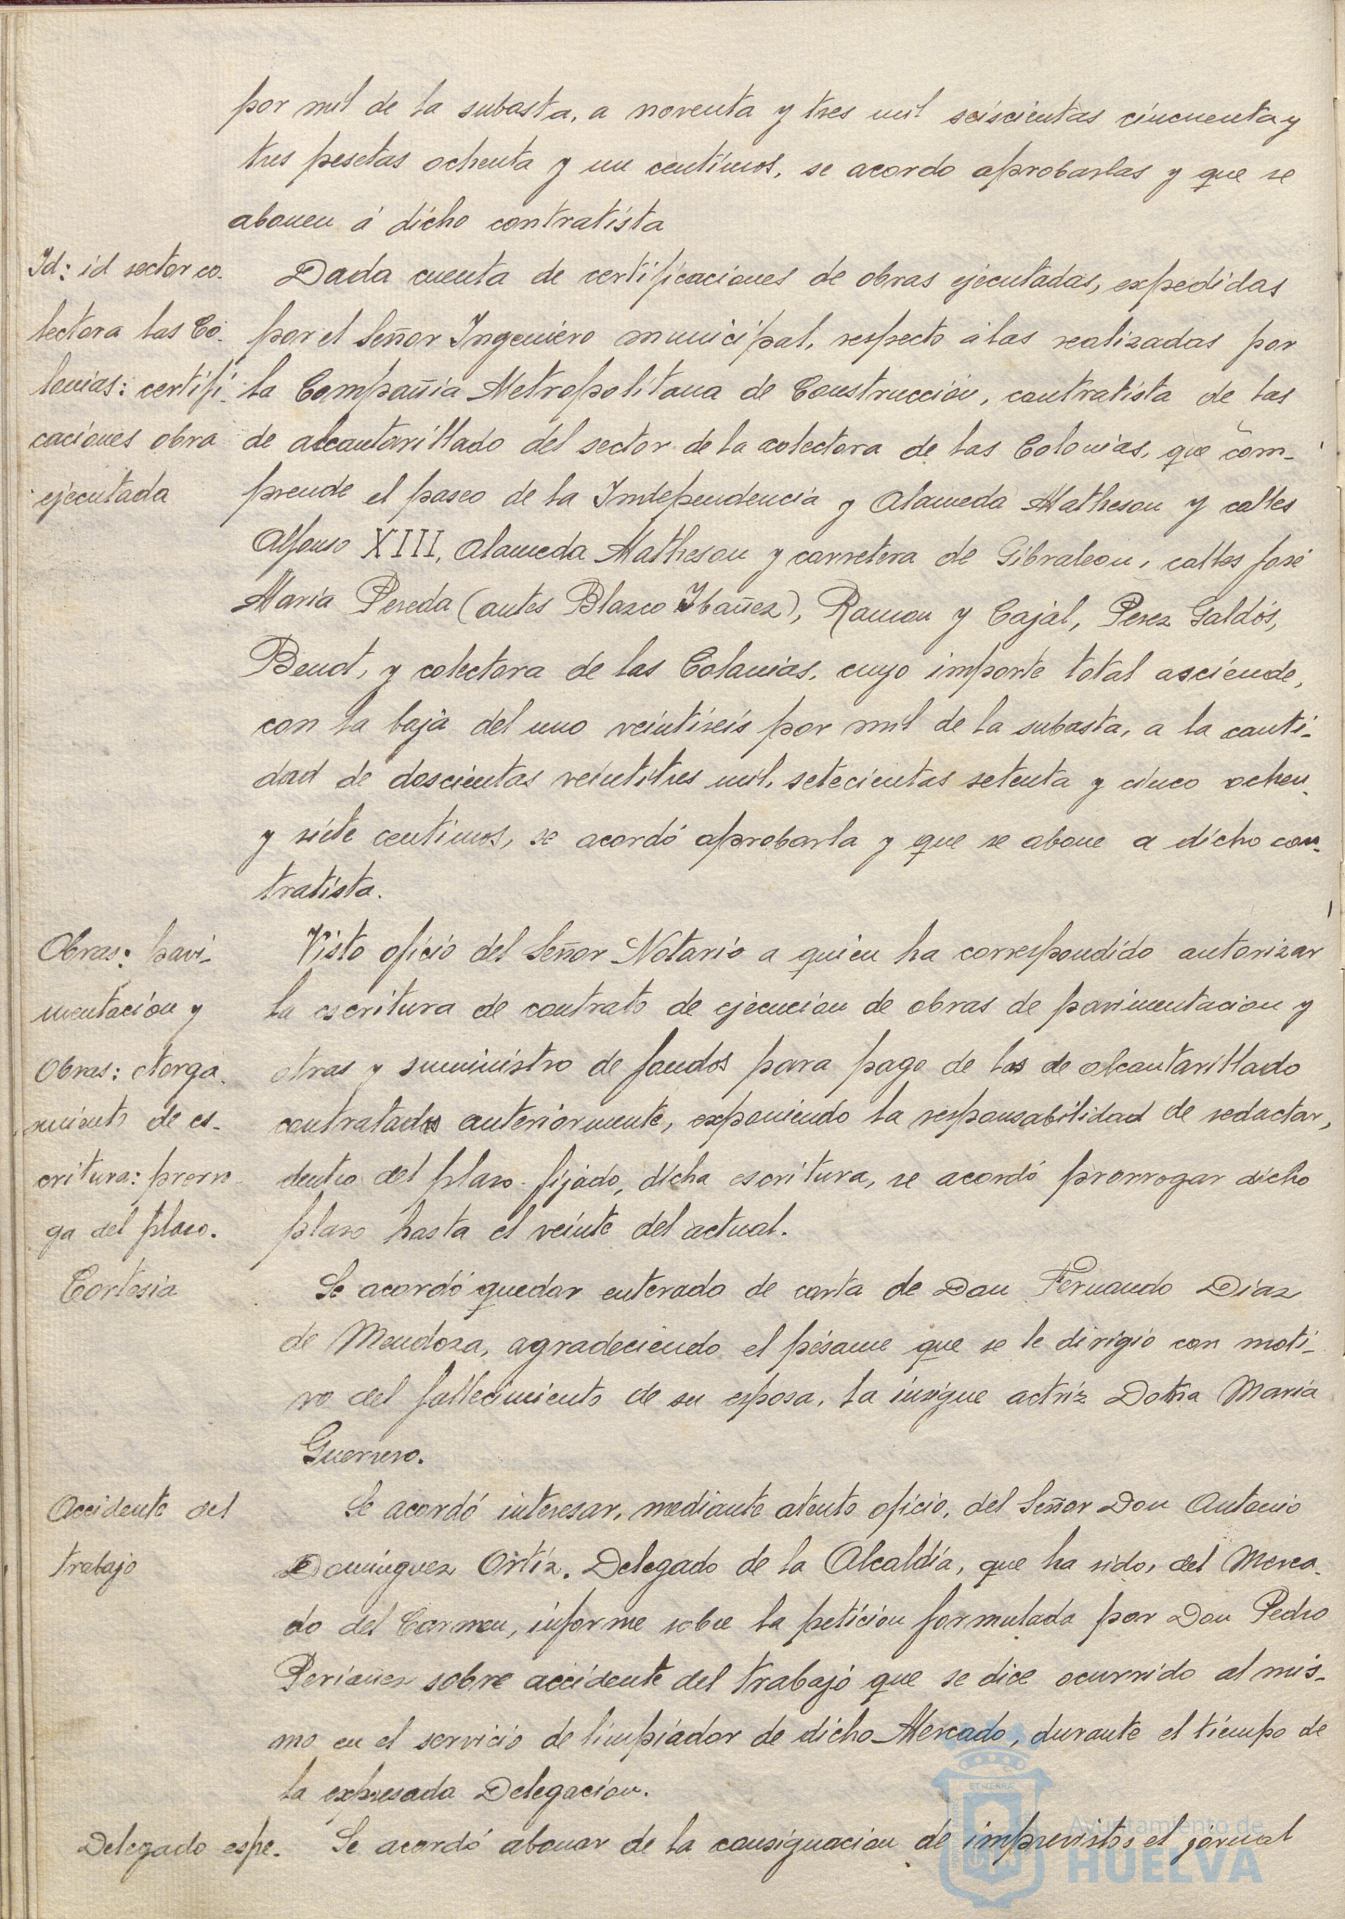 por mil de la subasta, a noventa y tres mil seiscientas cincuenta y
tres pesetas ochenta y un centimos, se acordo aprobarlas y que se
abonen á dicho contratista
Id: id sector co-
lectora las Co-
lonias: certifi-
caciones obra
ejecutada
Dada cuenta de certificaciones de obras ejecutadas, expedidas
por el Señor Ingeniero municipal, respecto á las realizadas por
la Compañia Metropolitana de Construcción, contratista de las
de alcantarillado del sector de la colectora de las Colonias, que com-
prende el paseo de la Independencia y Alameda Matheson y calles
Alfonso XIII, Alameda Matheson y carretera de Gibraleon, calles José
Maria Pereda (antes Blasco Ibañez), Ramon y Cajal, Perez Galdós,
Benot, y colectora de las Colonias, cuyo importe total asciende,
con la baja del uno veintiseis por mil de la subasta, a la canti-
dad de doscientas veintitres mil, setecientas setenta y cinco ochen-
y siete centimos, se acordó aprobarla y que se abone a dicho con-
tratista.
Obras: pavi-
mentación y
Obras: otorga-
miento de es-
critura: prorro-
ga del plazo.
Visto oficio del Señor Notario a quien ha correspondido autorizar
la escritura de contrato de ejecucion de obras de pavimentacion y
otras y suministro de fondos para pago de las de alcantarillado
contratados anteriormente, exponiendo la responsabilidad de redactar,
dentro del plazo fijado, dicha escritura, se acordó prorrogar dicho
plazo hasta el veinte del actual.
Cortesia
Se acordó quedar enterado de carta de Don Fernando Diaz
de Mendoza, agradeciendo el pésame que se le dirigió con moti-
vo del fallecimiento de su esposa, la insigne actriz Doña Maria
Guerrero.
Accidente del
trabajo
Se acordó interesar, mediante atento oficio, del Señor Don Antonio
Dominguez Ortiz, Delegado de la Alcaldía, que ha sido, del Merca-
do del Carmen, informe sobre la petición formulada por Don Pedro
Periañez sobre accidente del trabajo que se dice ocurrido al mis-
mo en el servicio de limpiador de dicho Mercado, durante el tiempo de
la expresada Delegación.
Delegado espe-
Se acordó abonar de la consignacion de imprevistos el jornal
Ayuntamiento de
HUELVA